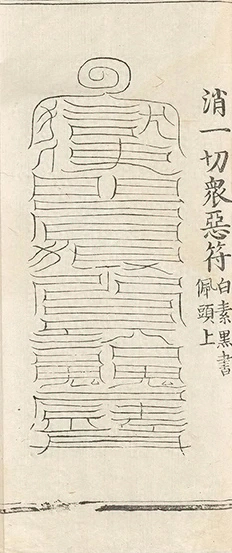 消一切衆惡符
白素黒書
佩頭上